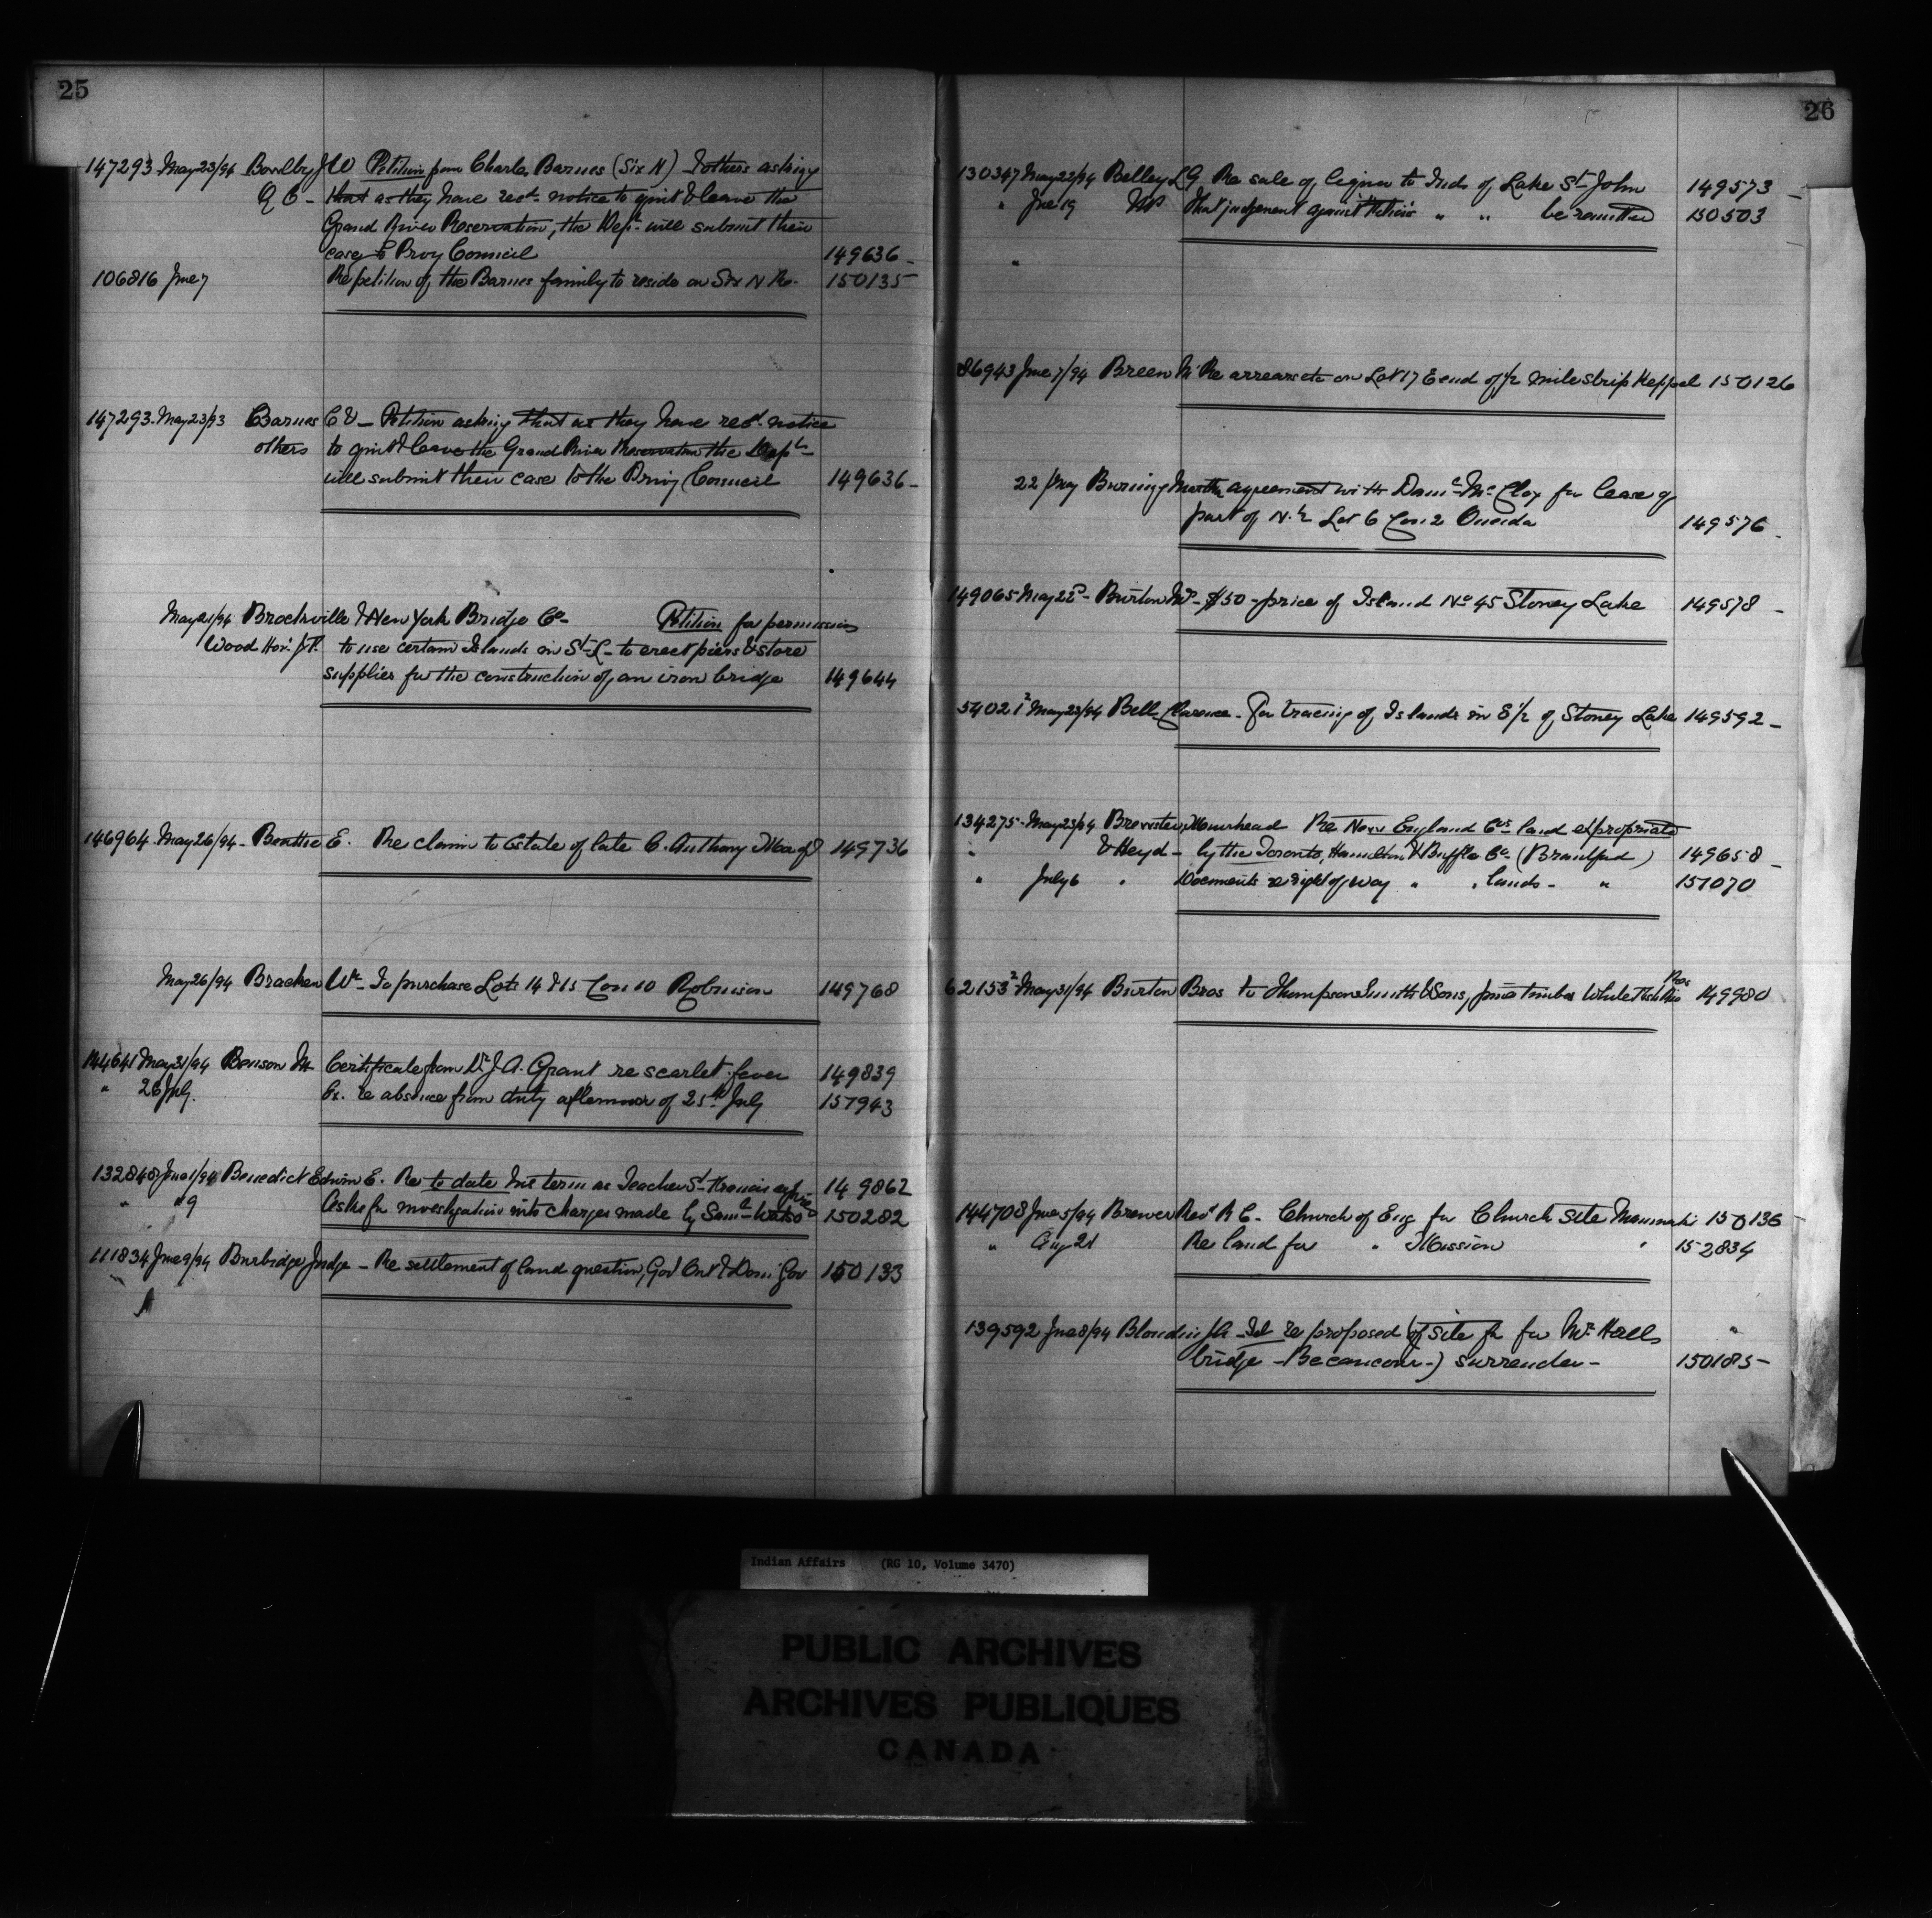 25
147293 May 23/94 Bowlby J W Petition from Charles Barnes (Six N) & others asking
Q C - that as they have recd notice to quit & leave the
Grand River Reservation, the Dept will submit their
case to Privy Council 149636 -
106816 June 7 Re petition of the Barnes family to reside on Six N Re. 150135
147293 - May 23/93 Barnes C & - Petition asking that as they have recd notice
others to quit & leave the Grand River Reservation the Dept
will submit their case to the Privy Council 149636 -
May 21/94 Brockville & New York Bridge Co - Petition for permission
Wood Hon. J.F. to use certain Islands in St L - to erect piers & store
supplies for the construction of an iron bridge 149644
146964 May 26/94 - Beattie E. Re claim to Estate of late C. Anthony 149736
May 26/94 Bracken Wm - To purchase Lots 14 & 15 Con 10 Robinson 149768
144641 May 31/94 Benson M Certificate from Dr J. A. Grant re scarlet fever 149839
" 26 July. Ex. re absence from duty afternoon of 25th July 151943
132848 June 1/94 Benedict Edwin E. Re to date his term as Teacher St Francis 149862
" " 9 Asks for investigation into charges made by Saml Watso 150282
111834 June 9/94 Burbidge Judge - Re settlement of land question, Govt Ont & Domn Gov 150133
26
130347 May 22/94 Belley L G Re sale of liquor to Inds of Lake St John 149573 -
" June 19 MP That judgement against " " be remitted 150503
86943 June 7/94 Breen M Re arrears etc on Lot 17 E end of 1/2 mile strip Keppel 150126
22 May Burning Martha agreement with Danl McCloy for lease of
part of N. 1/2 Lot 6 Con 2 Oneida 149576 -
149065 May 22d - Burton - $50 - price of Island No 45 Stoney Lake 149578 -
54021 2 May 23/94 Bell Clarence - For tracing of Islands in S 1/2 of Stoney Lake 149592 -
134275 - May 23/94 Brewster, Muirhead Re New England Cos land expropriate
" & Heyd - by the Toronto, Hamilton & Buffalo Co (Brantford) 149658 -
" July 6 " Documents re right of way " " lands - " 151070
62153 2 May 31/94 Burton Bros to Thompson Smith & Sons, pine timber White Fish Riv Res 149980
144708 June 5/94 Brewer Revd R C - Church of Eng for Church site 150136
" Aug 21 Re land for " Mission " 152834
139592 June 8/94 Blondin J A - Tel re proposed (of site for for Mr Hall
bridge - Becancour -) surrender - 150185 -
Indian Affairs (RG 10, Volume 3470)
PUBLIC ARCHIVES
ARCHIVES PUBLIQUES
CANADA